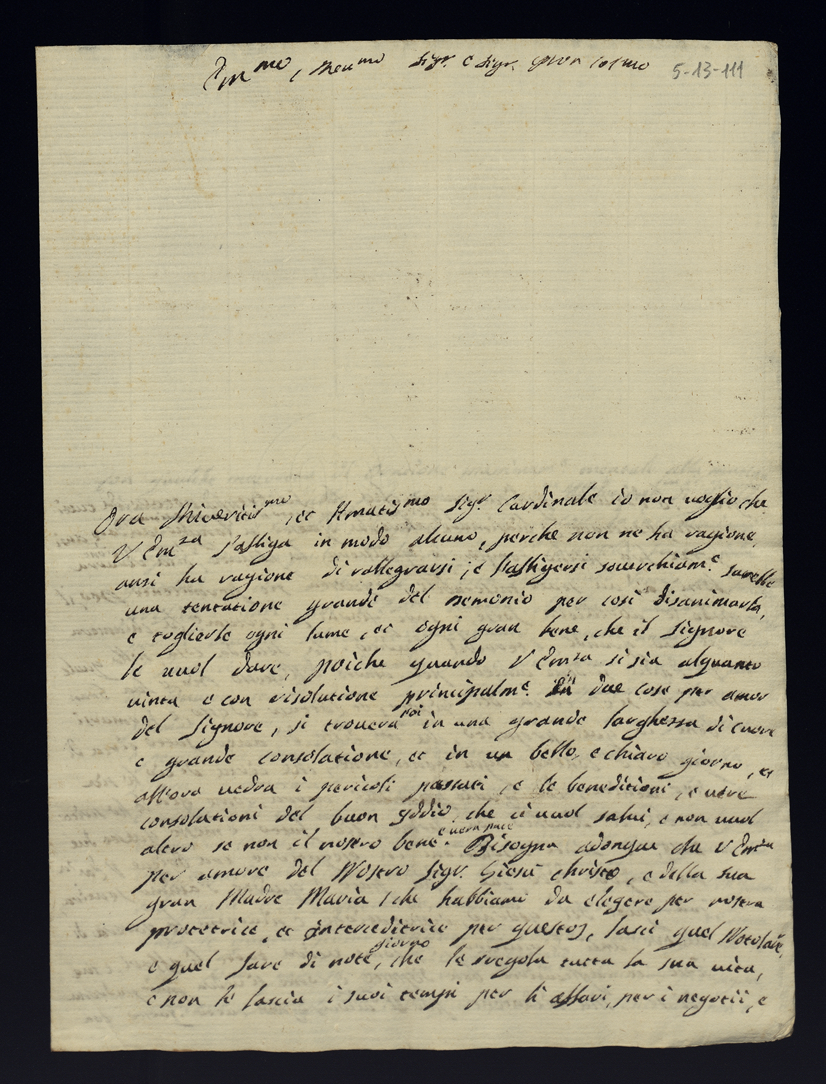 Em.mo e Reu.mo Sigr. e Sigr. Pron Col.mo 5-13-111
Ora Riveritis.mo, et Amatis.mo Sigr. Cardinale io non uoglio che
V Em.za s'affliga in modo alcuno, perche non ne ha ragione,
ansi ha ragione di rallegrarsi, e l'affligersi souerchiam.e sarebbe
una tentatione grande del Demonio per cosi disanimarla,
e toglierle ogni lume, et ogni gran bene, che il Signore
le uuol dare, poiche quando V Em.za si sia alquanto
uinta e con risolutione principalm.e in due cose per amor
del Signore, si trouera poi in una grande larghessa di cuore
e grande consolatione, et in un bello e chiaro giorno, et
allora uedra i pericoli passati, e le beneditioni, e uere
consolationi del buon Iddio, che ci uuol salui, e non uuol
altro se non il nostro bene e uera pace. Bisogna adonque che V Em.za
per amore del Nostro Sigr. Giesù Christo, e della sua
gran Madre Maria, che habbiami da elegere per nostra
protetrice, et interceditrice per questo, lasci quel
e quel fare di note giorno, che le sregola tutta la sua uita,
e non le lascia i suoi tempi per li affari, per i negotii, e